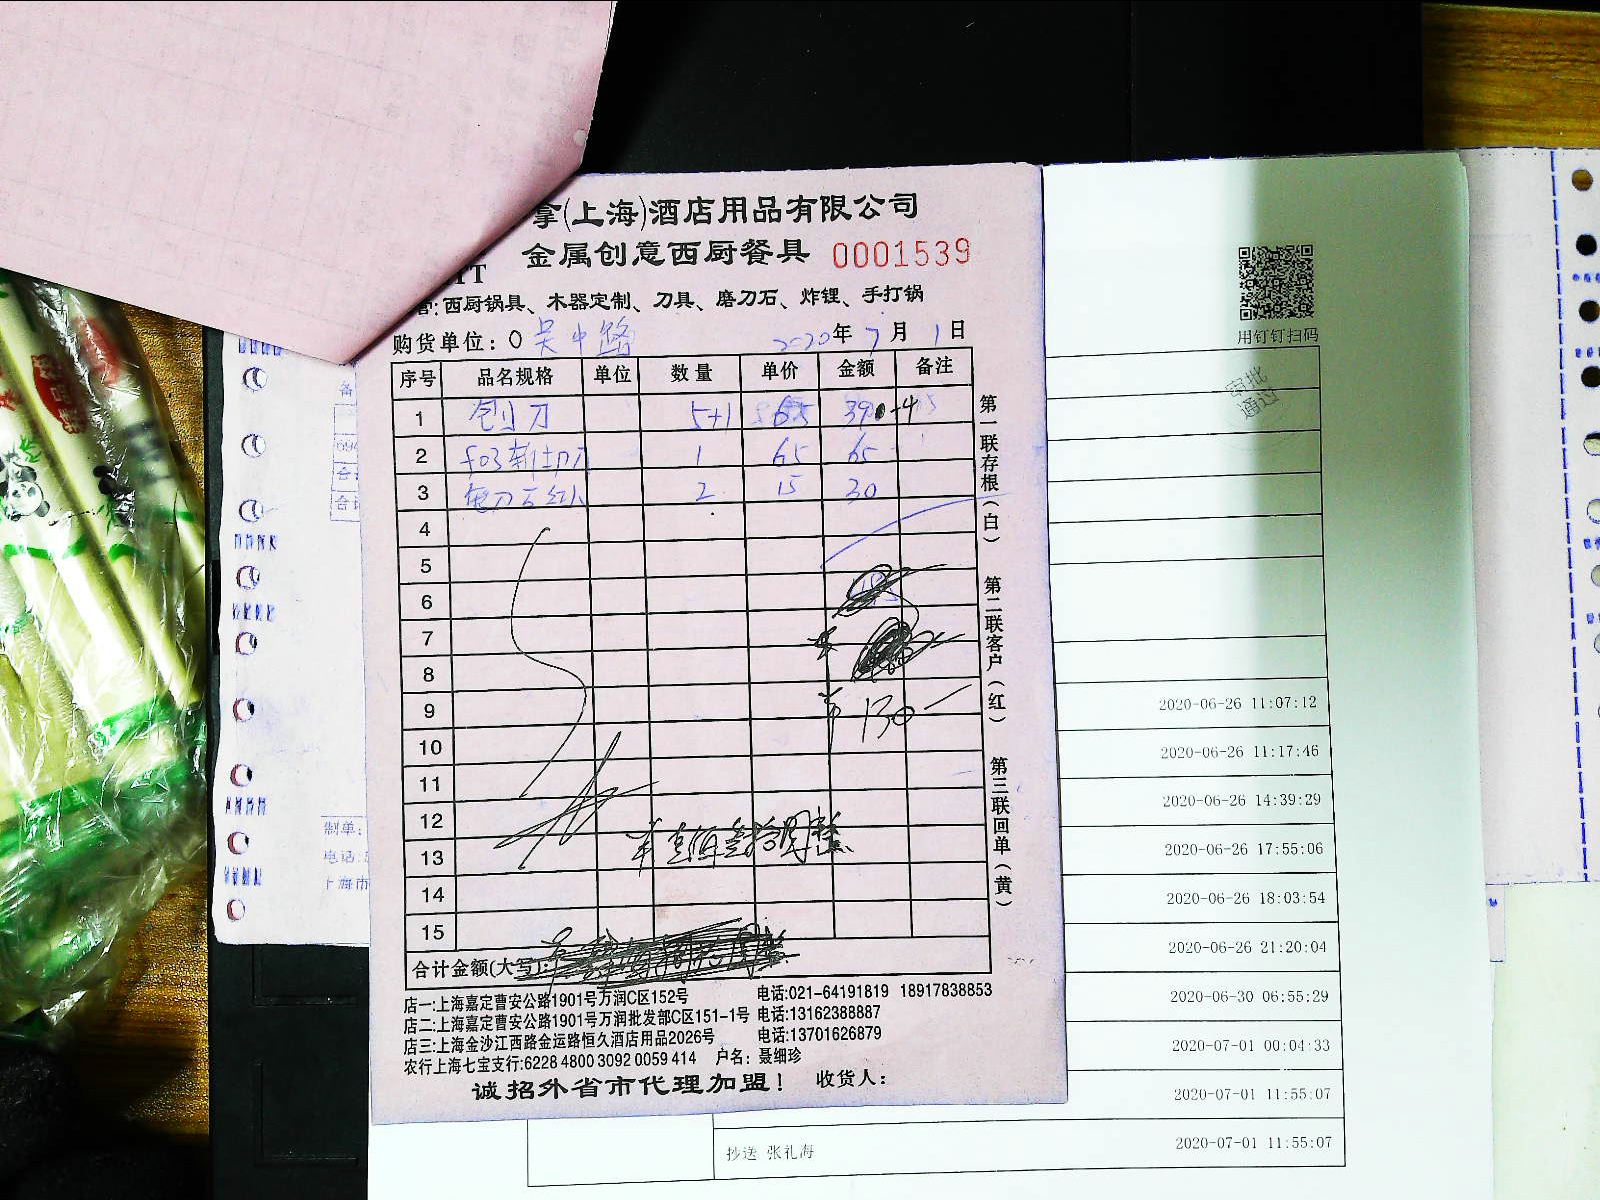 拿(上海)酒店用品有限公司
金属创意西厨餐具 0001539
IT
营:西厨锅具、木器定制、刀具、磨刀石、炸锂、手打锅
购货单位: 吴中路 2020年7月1日
序号 品名规格 单位 数量 单价 金额 备注
1 刨刀 5+1 65
2 65 65
3 2 15 30
4
5
6
7
8
9 130
10
11
12
13
14
15
合计金额(大写):
第一联存根(白) 第二联客户(红) 第三联回单(黄)
店一:上海嘉定曹安公路1901号万润C区152号 电话:021-64191819 18917838853
店二:上海嘉定曹安公路1901号万润批发部C区151-1号 电话:13162388887
店三:上海金沙江西路金运路恒久酒店用品2026号 电话:13701626879
农行上海七宝支行:6228 4800 3092 0059 414 户名: 聂细珍
诚招外省市代理加盟! 收货人:
用钉钉扫码
审批
通过
2020-06-26 11:07:12
2020-06-26 11:17:46
2020-06-26 14:39:29
2020-06-26 17:55:06
2020-06-26 18:03:54
2020-06-26 21:20:04
2020-06-30 06:55:29
2020-07-01 00:04:33
2020-07-01 11:55:07
抄送 张礼海 2020-07-01 11:55:07
备
合
合计
制单:
电话:
上海市